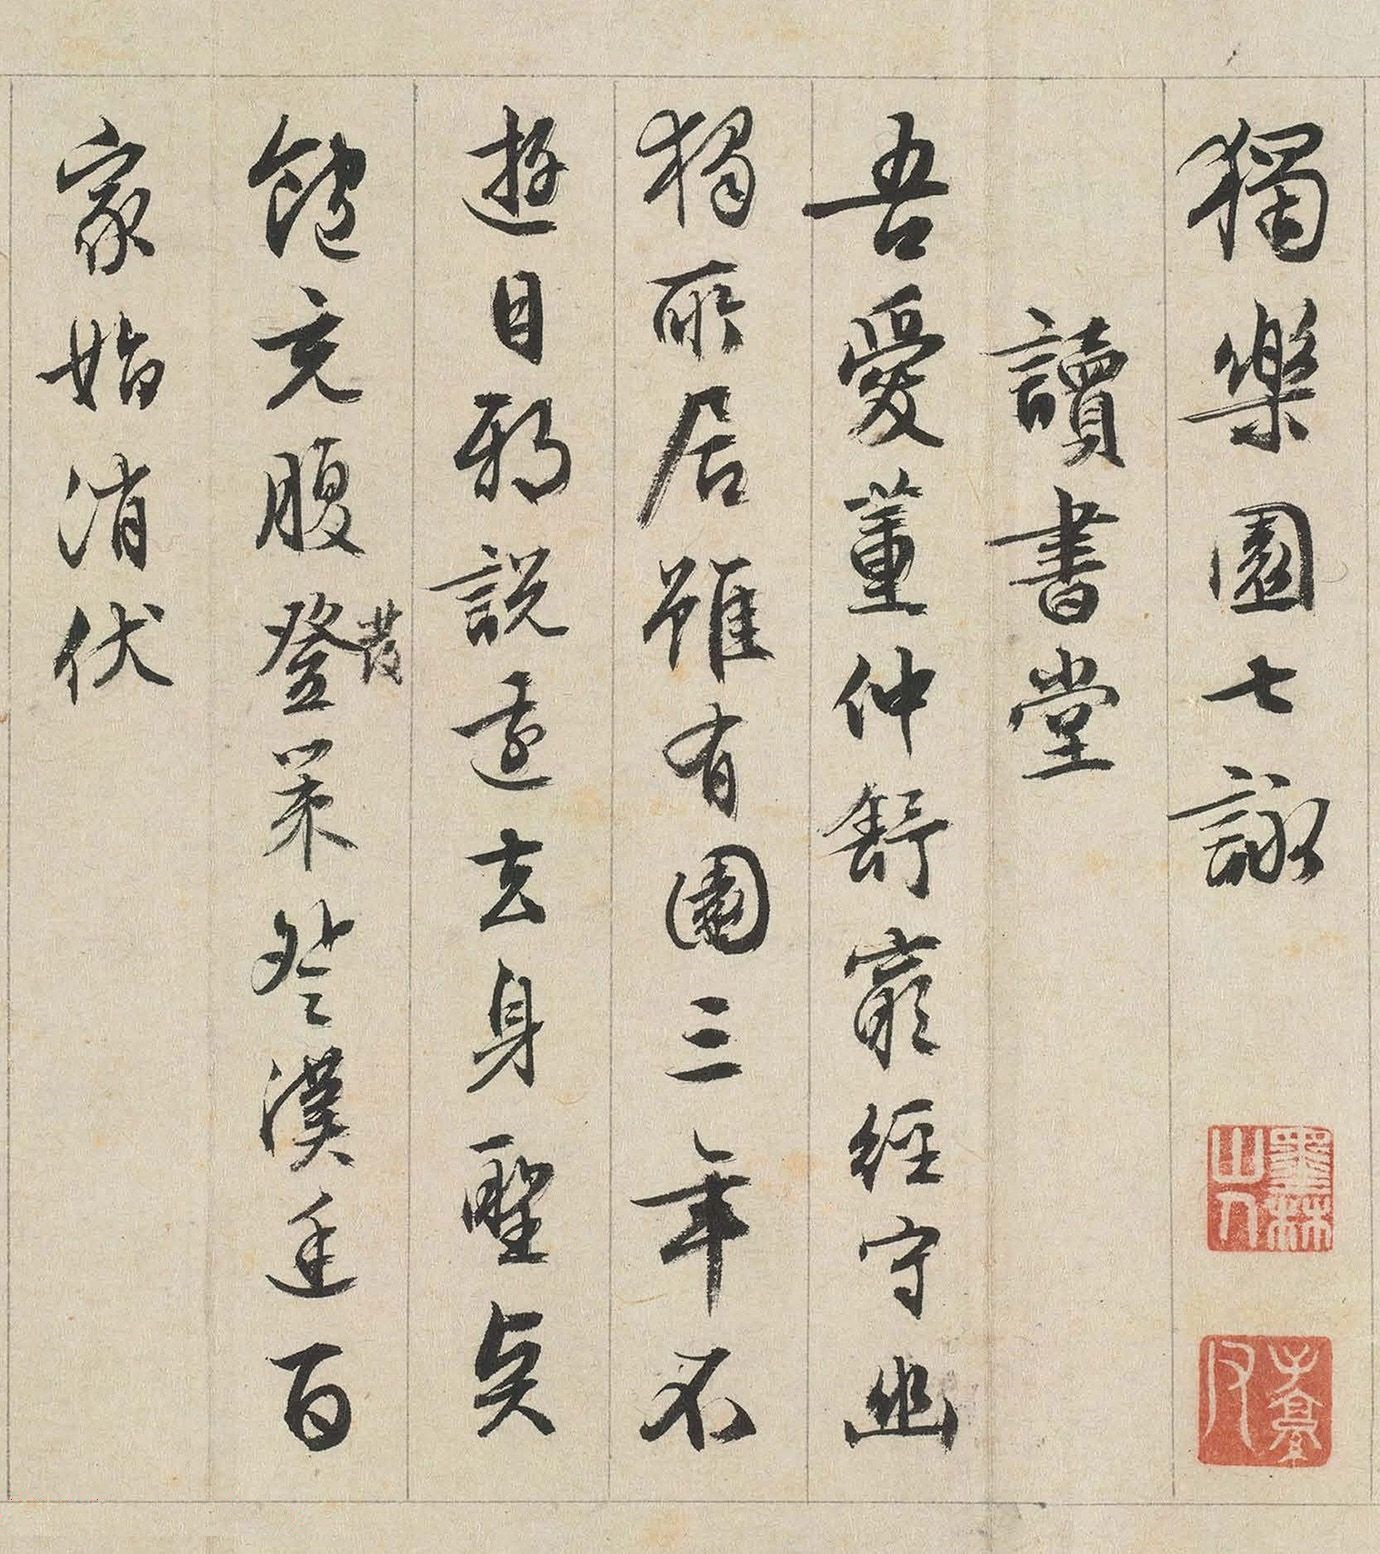 獨樂園七詠
讀書堂
吾愛董仲舒窮經守幽
獨所居雖有園三年不
遊目邪說遠去身聖
飽充腹登策登漢廷百
發
家始消伏
墨林山人
子京父